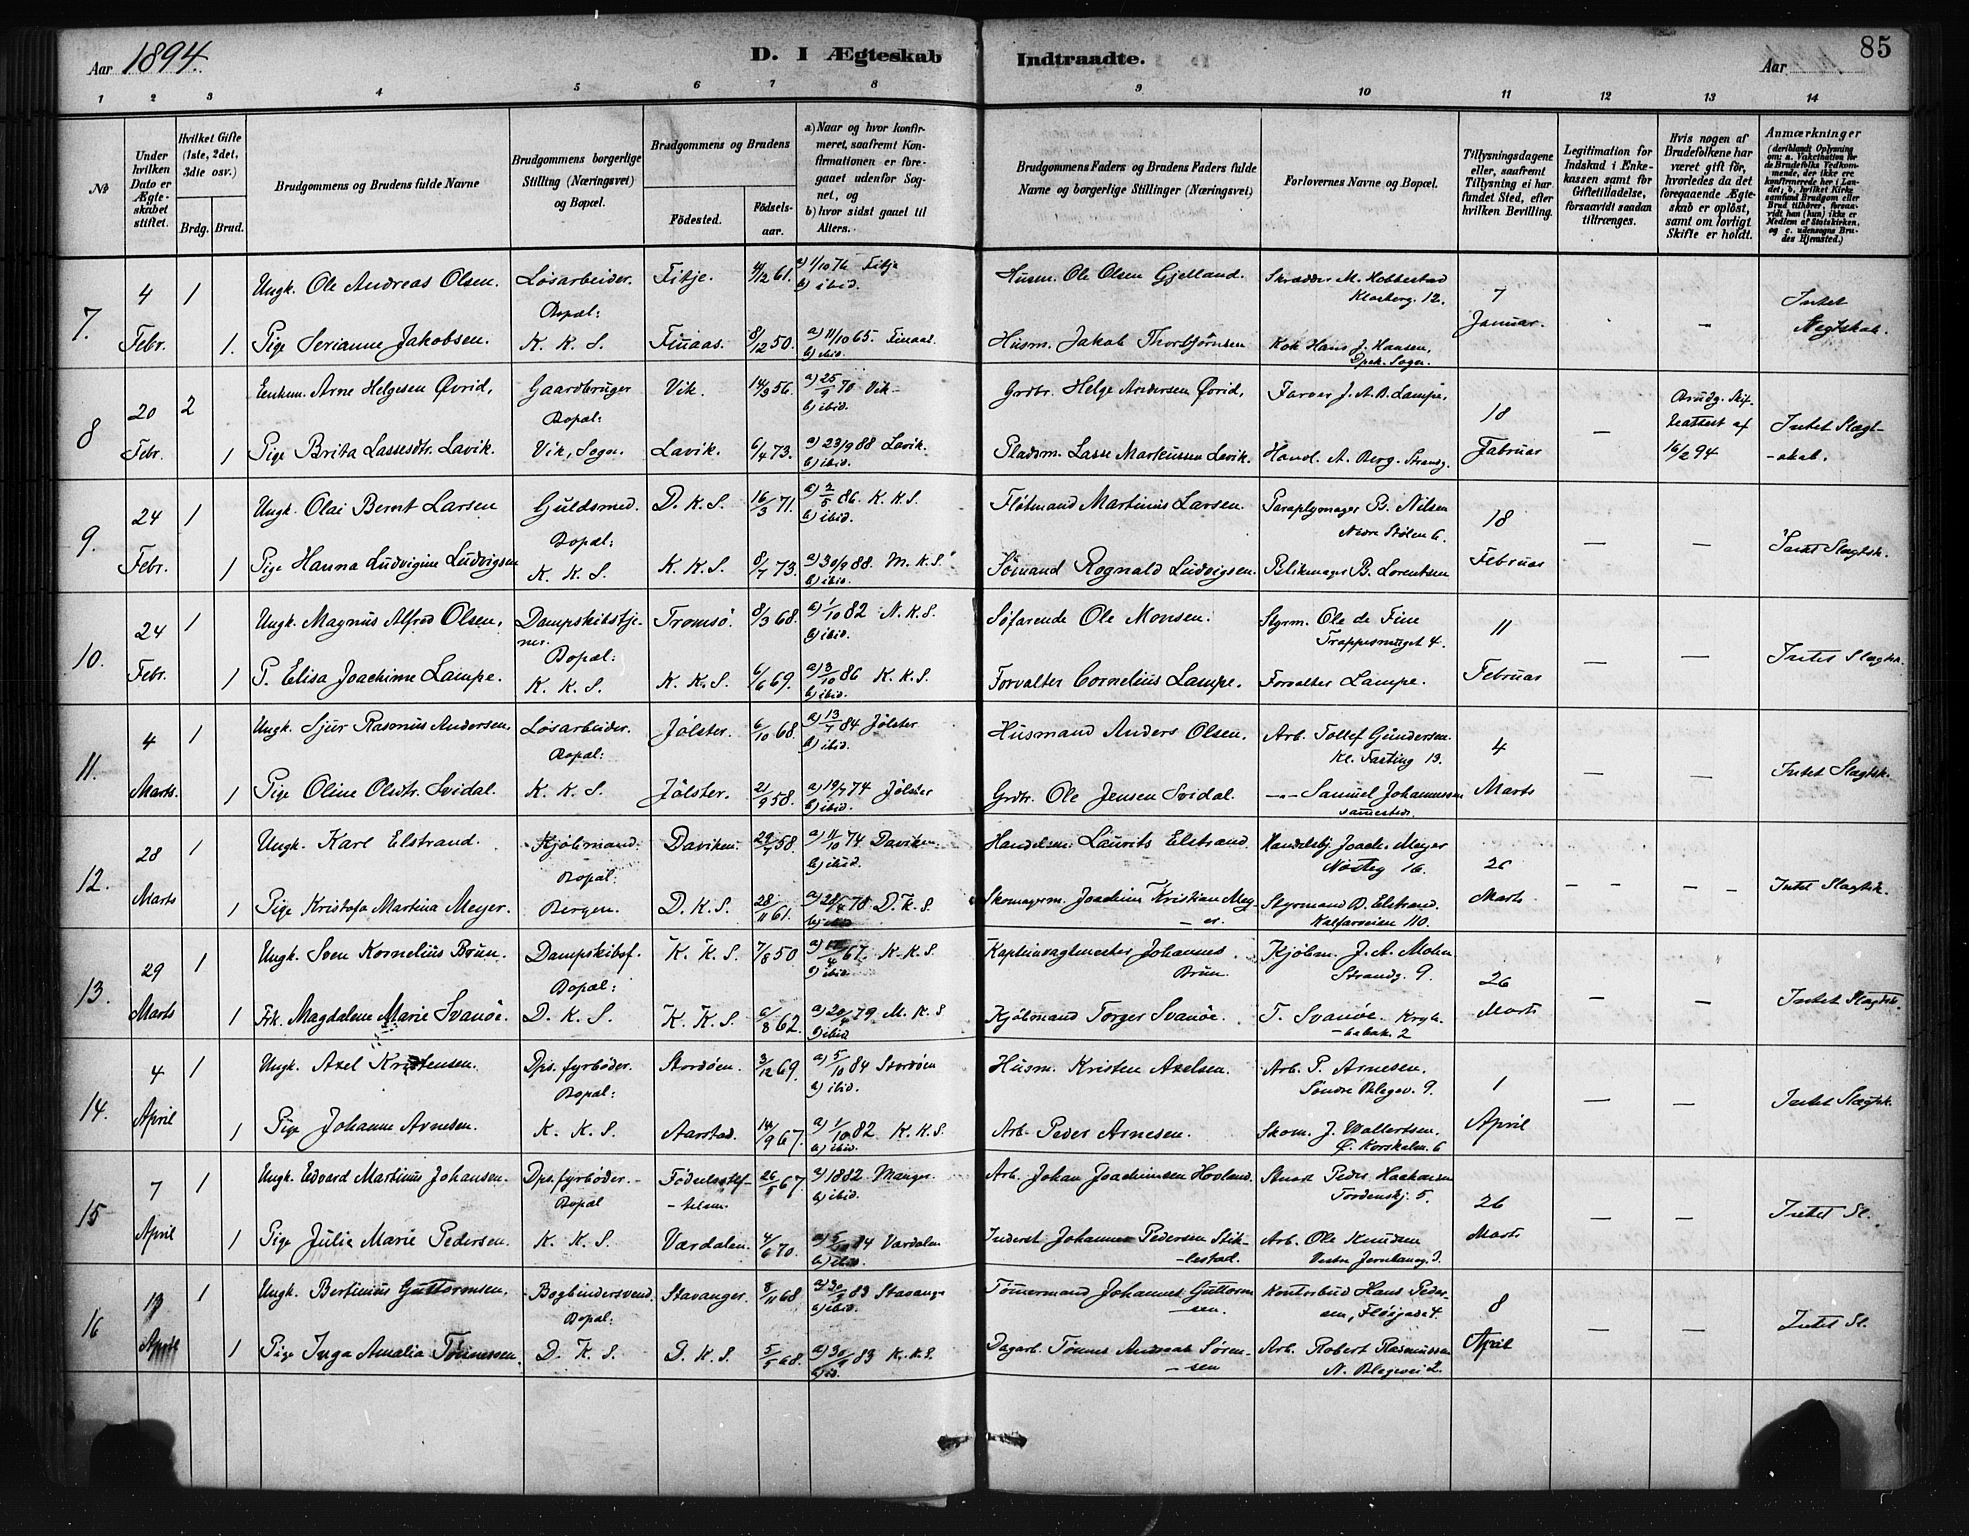 Aar 1894.
D. I Ægteskab Indtraadte.
Aar
85
1 2 3 4 5 6 7 8 9 10 11 12 13 14
No
Under hvilken Dato er Ægteskabet stiftet.
Hvilket Gifte (1ste, 2det, 3die osv.)
Brdg. Brud.
Brudgommens og Brudens fulde Navne
Brudgommens borgerlige Stilling (Næringsvei) og Bopæl.
Brudgommens og Brudens
Fødested.
Fødselsaar.
a) Naar og hvor konfirmeret, saafremt Konfirmationen er foregaaet udenfor Sognet, og
b) hvor sidst gaaet til Alters.
Brudgommens Faders og Brudens Faders fulde Navne og borgerlige Stillinger (Næringsvei)
Forlovernes Navne og Bopæl.
Tillysningsdagene eller, saafremt Tillysning ei har fundet Sted, efter hvilken Bevilling.
Legitimation for Indskud i Enkekassen samt for Giftetilladelse, forsaavidt saadan tiltrænges.
Hvis nogen af Brudefolkene har været gift før, hvorledes da det foregaaende Ægteskab er opløst, samt om lovligt Skifte er holdt.
Anmærkninger
7. 4 Febr. 1 Ungk. Ole Andreas Olsen. Løsarbeider. Fitje 4/12 61. a) 1/10 76 Fitje b) ibid. Husm. Ole Olsen Gjelland. Skrædder M. Hobbestad 7 Januar. Intet
Bopæl: Klosterg. 12.
1. Pige Serianne Jakobsen. K. K. S. Finaas. 8/12 50. a) 11/10 65. Finaas. b) ibid. Husm. Jakob Thorbjørnsen Kok Hans J. Hansen,
8 20 Febr. 2 Enkem. Arne Helgesen Øvrid, Gaardbruger Vik. 14/9 56. a) 25/9 70 Vik b) ibid. Grdbr. Helge Andersen Øvrid, Farver J. A. B. Lampe, 18 Februar — Brudg. Skifteattest af 16/2 94 Intet Slægtskab.
Bopæl:
1 Pige Brita Lassesdtr. Lavik. Vik, Sogn. Lavik. 6/4 73. a) 23/9 88 Lavik. b) ibid. Pladsm. Lasse Markussen Lavik. Handl. A. Berg. Strandg.
9. 24 Febr. 1 Ungk. Olai Bernt Larsen Guldsmed. D. K. S. 16/3 71. a) 2/5 86. K. K. S. b) ibid. Fløtmand Martinus Larsen. Paraplymager B. Nilsen 18 Februar — — Intet Slægtsk.
Bopæl: Nedre Stølen 6.
1 Pige Hanna Ludvigine Ludvigsen K. K. S. K. K. S. 8/7 73. a) 30/9 88 M. K. S. b) ibid. Sømand Rognald Ludvigsen. Blikmager B. Lorentsen
10. 24 Febr. 1 Ungk. Magnus Alfred Olsen, Dampskibstjener. Tromsø. 8/3 68. a) 1/10 82 N. K. S. b) ibid. Søfarende Ole Monsen. Styrm. Ole de Fine 11 Februar — — Intet Slægtsk.
Bopæl: Trappesmuget 4.
1 P. Elisa Joachime Lampe. K. K. S. K. K. S. 6/6 69. a) 3/10 86 K. K. S. b) ibid. Forvalter Cornelius Lampe. Forvalter Lampe.
11. 4 Marts. 1 Ungk. Sjur Rasmus Andersen, Løsarbeider. Jølster. 6/10 68. a) 13/7 84 Jølster b) ibid. Husmand Anders Olsen. Arb. Tollef Gundersen. 4 Marts — — Intet Slægtsk.
Bopæl: Kl. Fasting 13.
1 Pige Oline Olsdtr. Svidal. K. K. S. Jølster. 21/9 58. a) 19/7 74 Jølster b) ibid. Grdbr. Ole Jensen Svidal. — Samuel Johannessen sammesteds.
12. 28 Marts 1 Ungk. Karl Elstrand. Kjøbmand. Daviken. 29/7 58. a) 11/10 74 Daviken. b) ibid. Handelsm. Laurits Elstrand. Handelsbj. Joach. Meyer 26 Marts — — — — Intet Slægtsk.
Bopæl: Nøsteg 16.
1 Pige Kristofa Martina Meyer. Bergen. D. K. S. 28/11 61. a) 28/4 78 D. K. S. Skomagerm. Joachim Kristian Meyer. Styrmand D. Elstrand. Kalfarveien 110.
13. 29 Marts 1 Ungk. Sven Kornelius Brun. Dampskibsf. K. K. S. 7/8 50 67. K. K. S. b) ibid Johannes Brun Kjøbm. J. A. Mohn 26 Marts — — Intet Slægtsk.
Bopæl: Strandg. 9.
1 Frk. Magdalene Marie Svanøe. D. K. S. K. K. S. 6/8 62. a) 20/4 79 M. K. S b) ibid Kjøbmand Torger Svanøe. T. Svanøe.
14. 4 April 1 Ungk. Axel Kristensen. Dps. fyrbøder. Stordøen. 3/12 69. a) 5/10 84 Stordøen b) ibid. Husm. Kristen Axelsen. Arb. P. Arnesen. 1 April — — Intet Slægtsk.
Bopæl: Søndre Blegev. 9.
1 Pige Johanne Arnesen. K. K. S. Aarstad. 14/9 67. a) 1/10 82 K. K. S. b) ibid. Arb. Peder Arnesen. Skom. J. Wollertsen.
15 7 April 1 Ungk. Edvard Martinus Johansen. Dps. fyrbøder. Fødselsstiftelsen. 26/5 67. a) 1882 Manger. b) ibid. Arb. Johan Joachimsen Hovland. Peder Haakonsen 26 Marts — — Intet Sl.
Bopæl Tordenskj. 5.
1 Pige Julie Marie Pedersen. K. K. S. Værdalen. 4/6 70. 84 Værdalen Johannes Pedersen Stiklestad. Arb. Ole Knudsen
16 13 April 1 Ungk. Bertinius Guttormsen, Bogbindersvend. Stavanger. 8/11 68. a) 30/9 83 Stavanger b) ibid. Tømmermand Johannes Guttormsen. Kontorbud Hans Pedersen, Fløigade 4. 8 April — — Intet Sl.
Bopæl:
1 Pige Inga Amalia Tønnessen. D. K. S. D. K. S. 5/5 68. a) 30/9 83 K. K. S. b) ibid. Dagarb. Tønnes Andreas Sørensen Arb. Robert Rasmussen N. Blegevei 2.